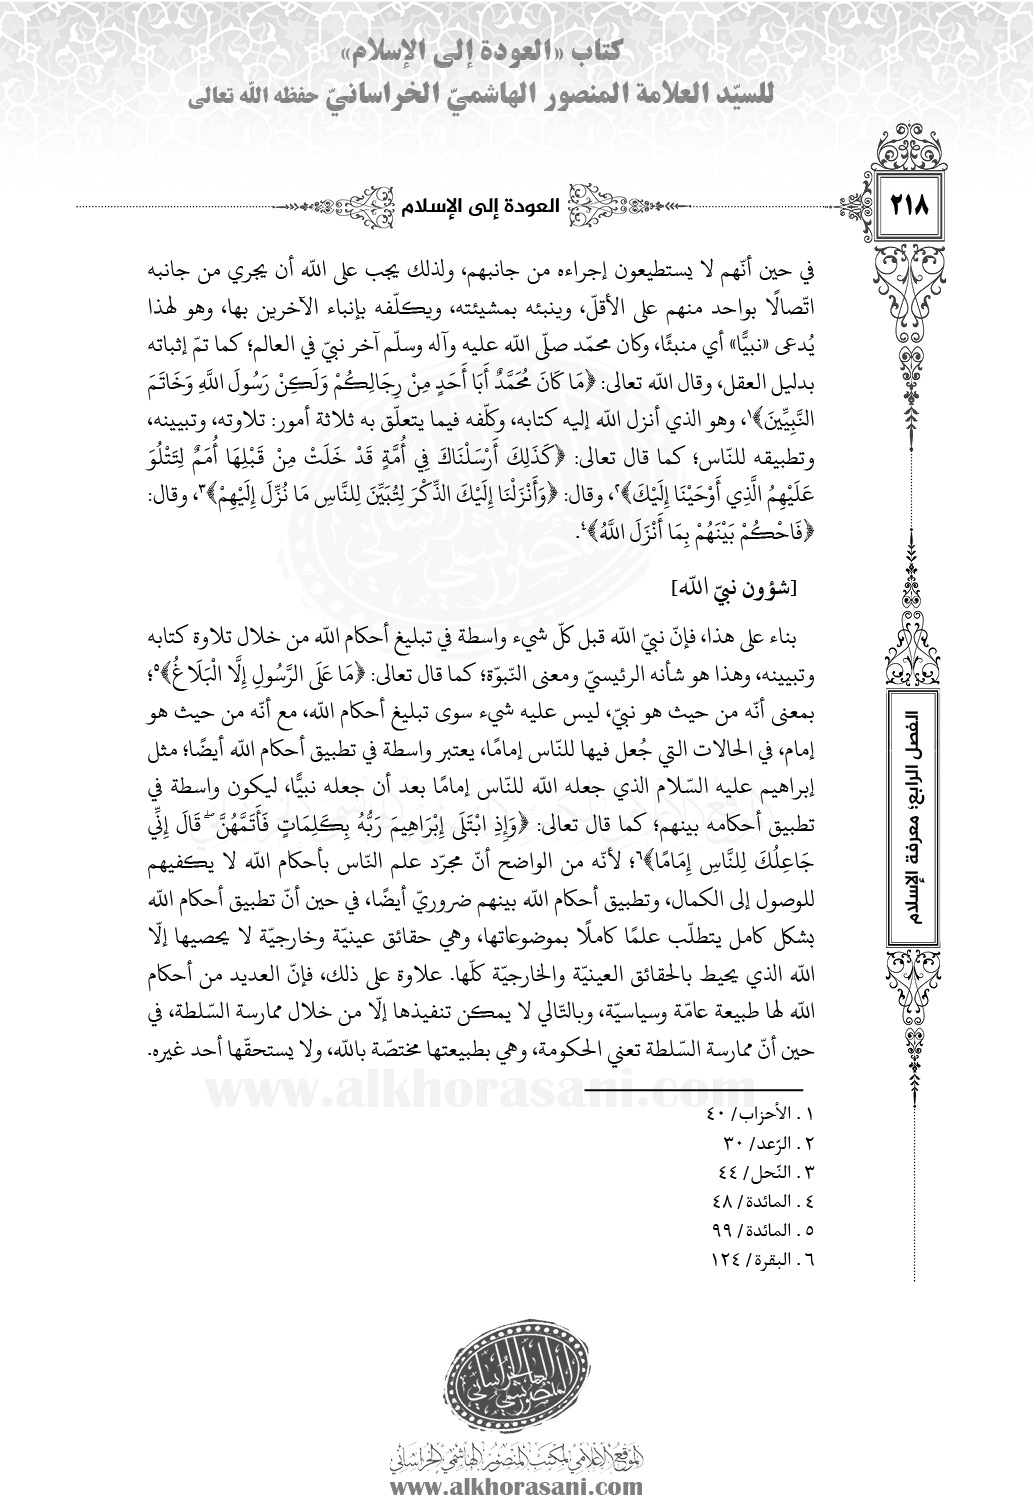 كتاب «العودة إلى الإسلام»
للسيّد العلامة المنصور الهاشميّ الخراسانيّ حفظه الله تعالى
٢١٨
العودة إلى الإسلام
في حين أنّهم لا يستطيعون إجراءه من جانبهم، ولذلك يجب على الله أن يجري من جانبه
اتّصالًا بواحد منهم على الأقلّ، وينبئه بمشيئته، ويكلّفه بإنباء الآخرين بها، وهو لهذا
يُدعى «نبيًّا» أي منبئًا، وكان محمّد صلّى الله عليه وآله وسلّم آخر نبيّ في العالم؛ كما تمّ إثباته
بدليل العقل، وقال الله تعالى: ﴿مَا كَانَ مُحَمَّدٌ أَبَا أَحَدٍ مِنْ رِجَالِكُمْ وَلَكِنْ رَسُولَ اللَّهِ وَخَاتَمَ
النَّبِيِّينَ﴾١، وهو الذي أنزل الله إليه كتابه، وكلّفه فيما يتعلّق به ثلاثة أمور: تلاوته، وتبيينه،
وتطبيقه للنّاس؛ كما قال تعالى: ﴿كَذَلِكَ أَرْسَلْنَاكَ فِي أُمَّةٍ قَدْ خَلَتْ مِنْ قَبْلِهَا أُمَمٌ لِتَتْلُوَ
عَلَيْهِمُ الَّذِي أَوْحَيْنَا إِلَيْكَ﴾٢، وقال: ﴿وَأَنْزَلْنَا إِلَيْكَ الذِّكْرَ لِتُبَيِّنَ لِلنَّاسِ مَا نُزِّلَ إِلَيْهِمْ﴾٣، وقال:
﴿فَاحْكُمْ بَيْنَهُمْ بِمَا أَنْزَلَ اللَّهُ﴾٤.
[شؤون نبيّ الله]
بناء على هذا، فإنّ نبيّ الله قبل كلّ شيء واسطة في تبليغ أحكام الله من خلال تلاوة كتابه
وتبيينه، وهذا هو شأنه الرئيسيّ ومعنى النّبوّة؛ كما قال تعالى: ﴿مَا عَلَى الرَّسُولِ إِلَّا الْبَلَاغُ﴾٥؛
بمعنى أنّه من حيث هو نبيّ، ليس عليه شيء سوى تبليغ أحكام الله، مع أنّه من حيث هو
إمام، في الحالات التي جُعل فيها للنّاس إمامًا، يعتبر واسطة في تطبيق أحكام الله أيضًا؛ مثل
إبراهيم عليه السّلام الذي جعله الله للنّاس إمامًا بعد أن جعله نبيًّا، ليكون واسطة في
تطبيق أحكامه بينهم؛ كما قال تعالى: ﴿وَإِذِ ابْتَلَى إِبْرَاهِيمَ رَبُّهُ بِكَلِمَاتٍ فَأَتَمَّهُنَّ ۖ قَالَ إِنِّي
جَاعِلُكَ لِلنَّاسِ إِمَامًا﴾٦؛ لأنّه من الواضح أنّ مجرّد علم النّاس بأحكام الله لا يكفيهم
للوصول إلى الكمال، وتطبيق أحكام الله بينهم ضروريّ أيضًا، في حين أنّ تطبيق أحكام الله
بشكل كامل يتطلّب علمًا كاملًا بموضوعاتها، وهي حقائق عينيّة وخارجيّة لا يحصيها إلّا
الله الذي يحيط بالحقائق العينيّة والخارجيّة كلّها. علاوة على ذلك، فإنّ العديد من أحكام
الله لها طبيعة عامّة وسياسيّة، وبالتّالي لا يمكن تنفيذها إلّا من خلال ممارسة السّلطة، في
حين أنّ ممارسة السّلطة تعني الحكومة، وهي بطبيعتها مختصّة بالله، ولا يستحقّها أحد غيره.
الفصل الرابع؛ معرفة الإسلام
www.alkhorasani.com
١ . الأحزاب/ ٤٠
٢ . الرّعد/ ٣٠
٣ . النّحل/ ٤٤
٤ . المائدة/ ٤٨
٥ . المائدة/ ٩٩
٦ . البقرة/ ١٢٤
الموقع الإعلامي لمكتب المنصور الهاشمي الخراساني
www.alkhorasani.com